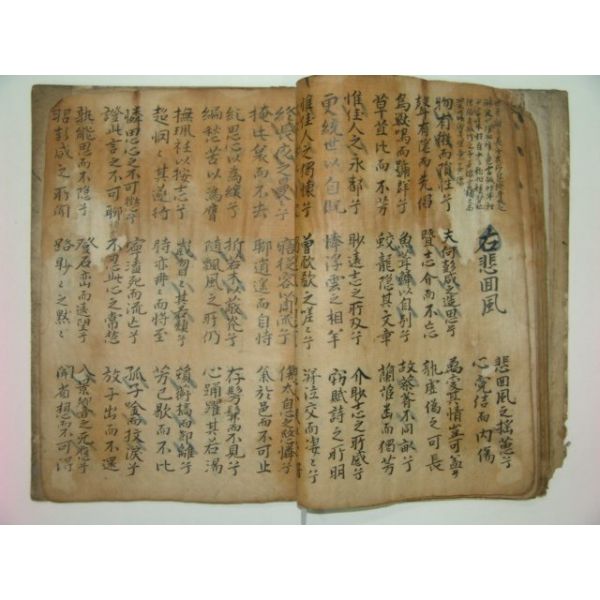 右悲回風
悲回風之搖蕙兮
心寃結而內傷
物有微而隕性兮
聲有隱而先倡
夫何彭咸之造思兮
曁志介而不忘
萬変其情豈可盖兮
孰虛僞之可長
鳥獸鳴而號群兮
草苴比而不芳
魚葺鱗以自別兮
蛟龍隱其文章
故荼薺不同畝兮
蘭茝幽而獨芳
惟佳人之永都兮
更統世以自貺
眇遠志之所及兮
憐浮雲之相羊
介眇志之所惑兮
竊賦詩之所明
惟佳人之獨懷兮
曾歔欷之嗟々兮
涕泣交而凄々兮
終長夜之曼々兮
掩此哀而不去
寤從容以周流兮
聊逍遙而自恃
傷太息之愍憐兮
氣於邑而不可止
糺思心以爲纕兮
編愁苦以爲膺
折若木以蔽光兮
隨飄風之所仍
存髣髴而不見兮
心踊躍其若湯
撫珮衽以按志兮
超惘々其遂行
歲曶々其若頹兮
時亦冉々而將至
薠蘅槁而節離兮
芳已歇而不比
憐思心之不可懲兮
證此言之不可聊
寧溘死而流亡兮
不忍此心之常愁
孤子唫而抆淚兮
放子出而不還
孰能思而不隱兮
昭彭咸之所聞
登石巒而遠望兮
路眇々之默々
入景響之無應兮
聞省想而不可得